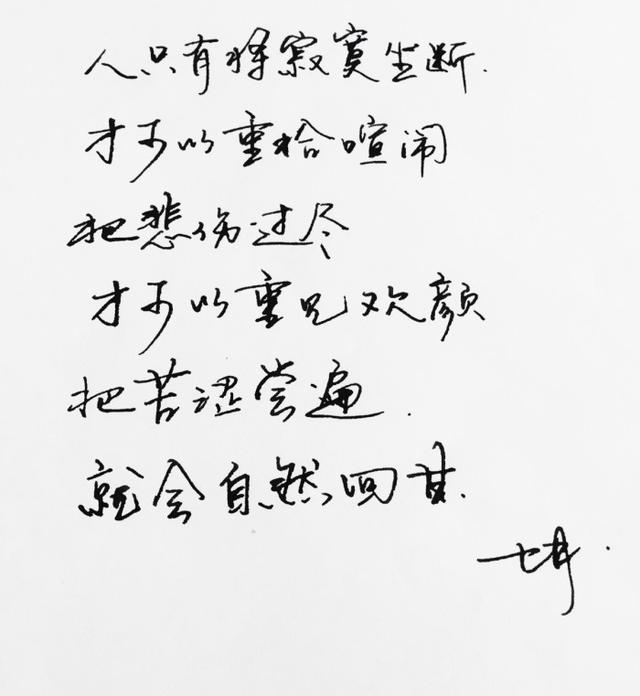 人只有将寂寞坐断.
才可以重拾喧闹
把悲伤过尽
才可以重见欢颜
把苦涩尝遍.
就会自然回甘.